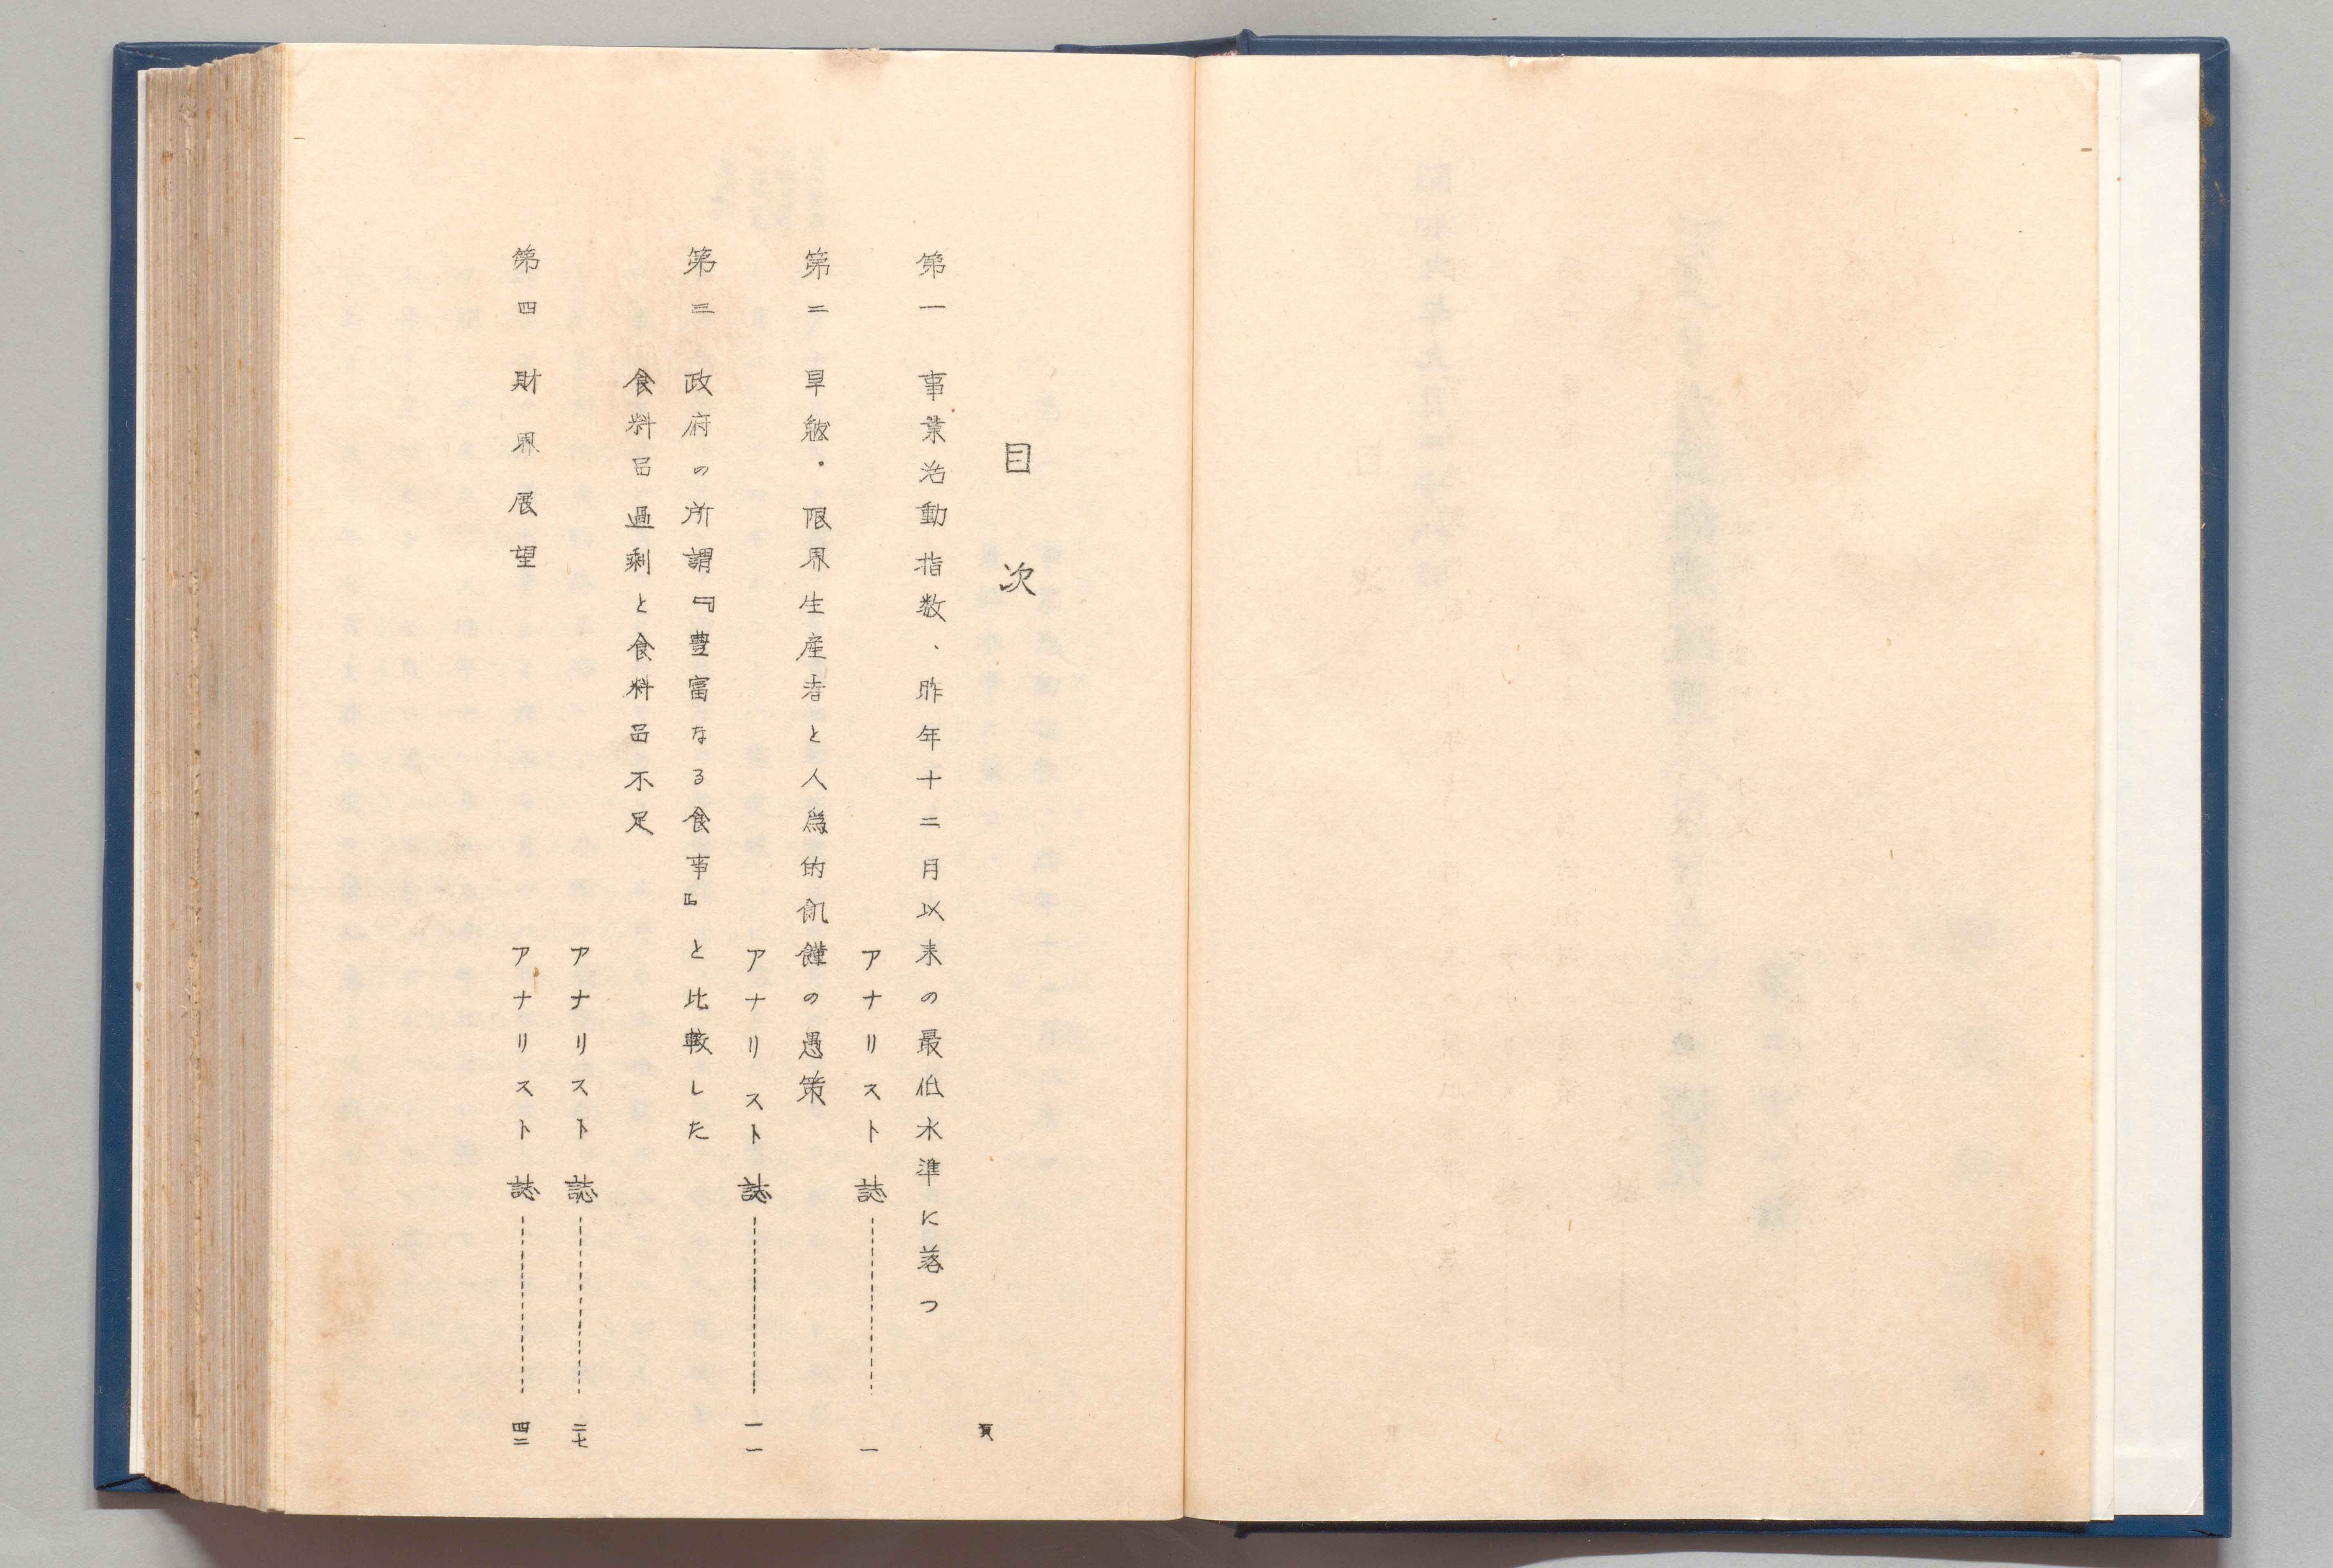 目次
頁
第一　事業活動指数、昨年十二月以来の最低水準に落つ
アナリスト誌………一
第二　旱魃・限界生産者と人爲的飢饉の愚策
アナリスト誌………一一
第三　政府の所謂『豊富なる食事』と比較した
食料品過剰と食料品不足
アナリスト誌………二七
第四　財界展望
アナリスト誌………四二